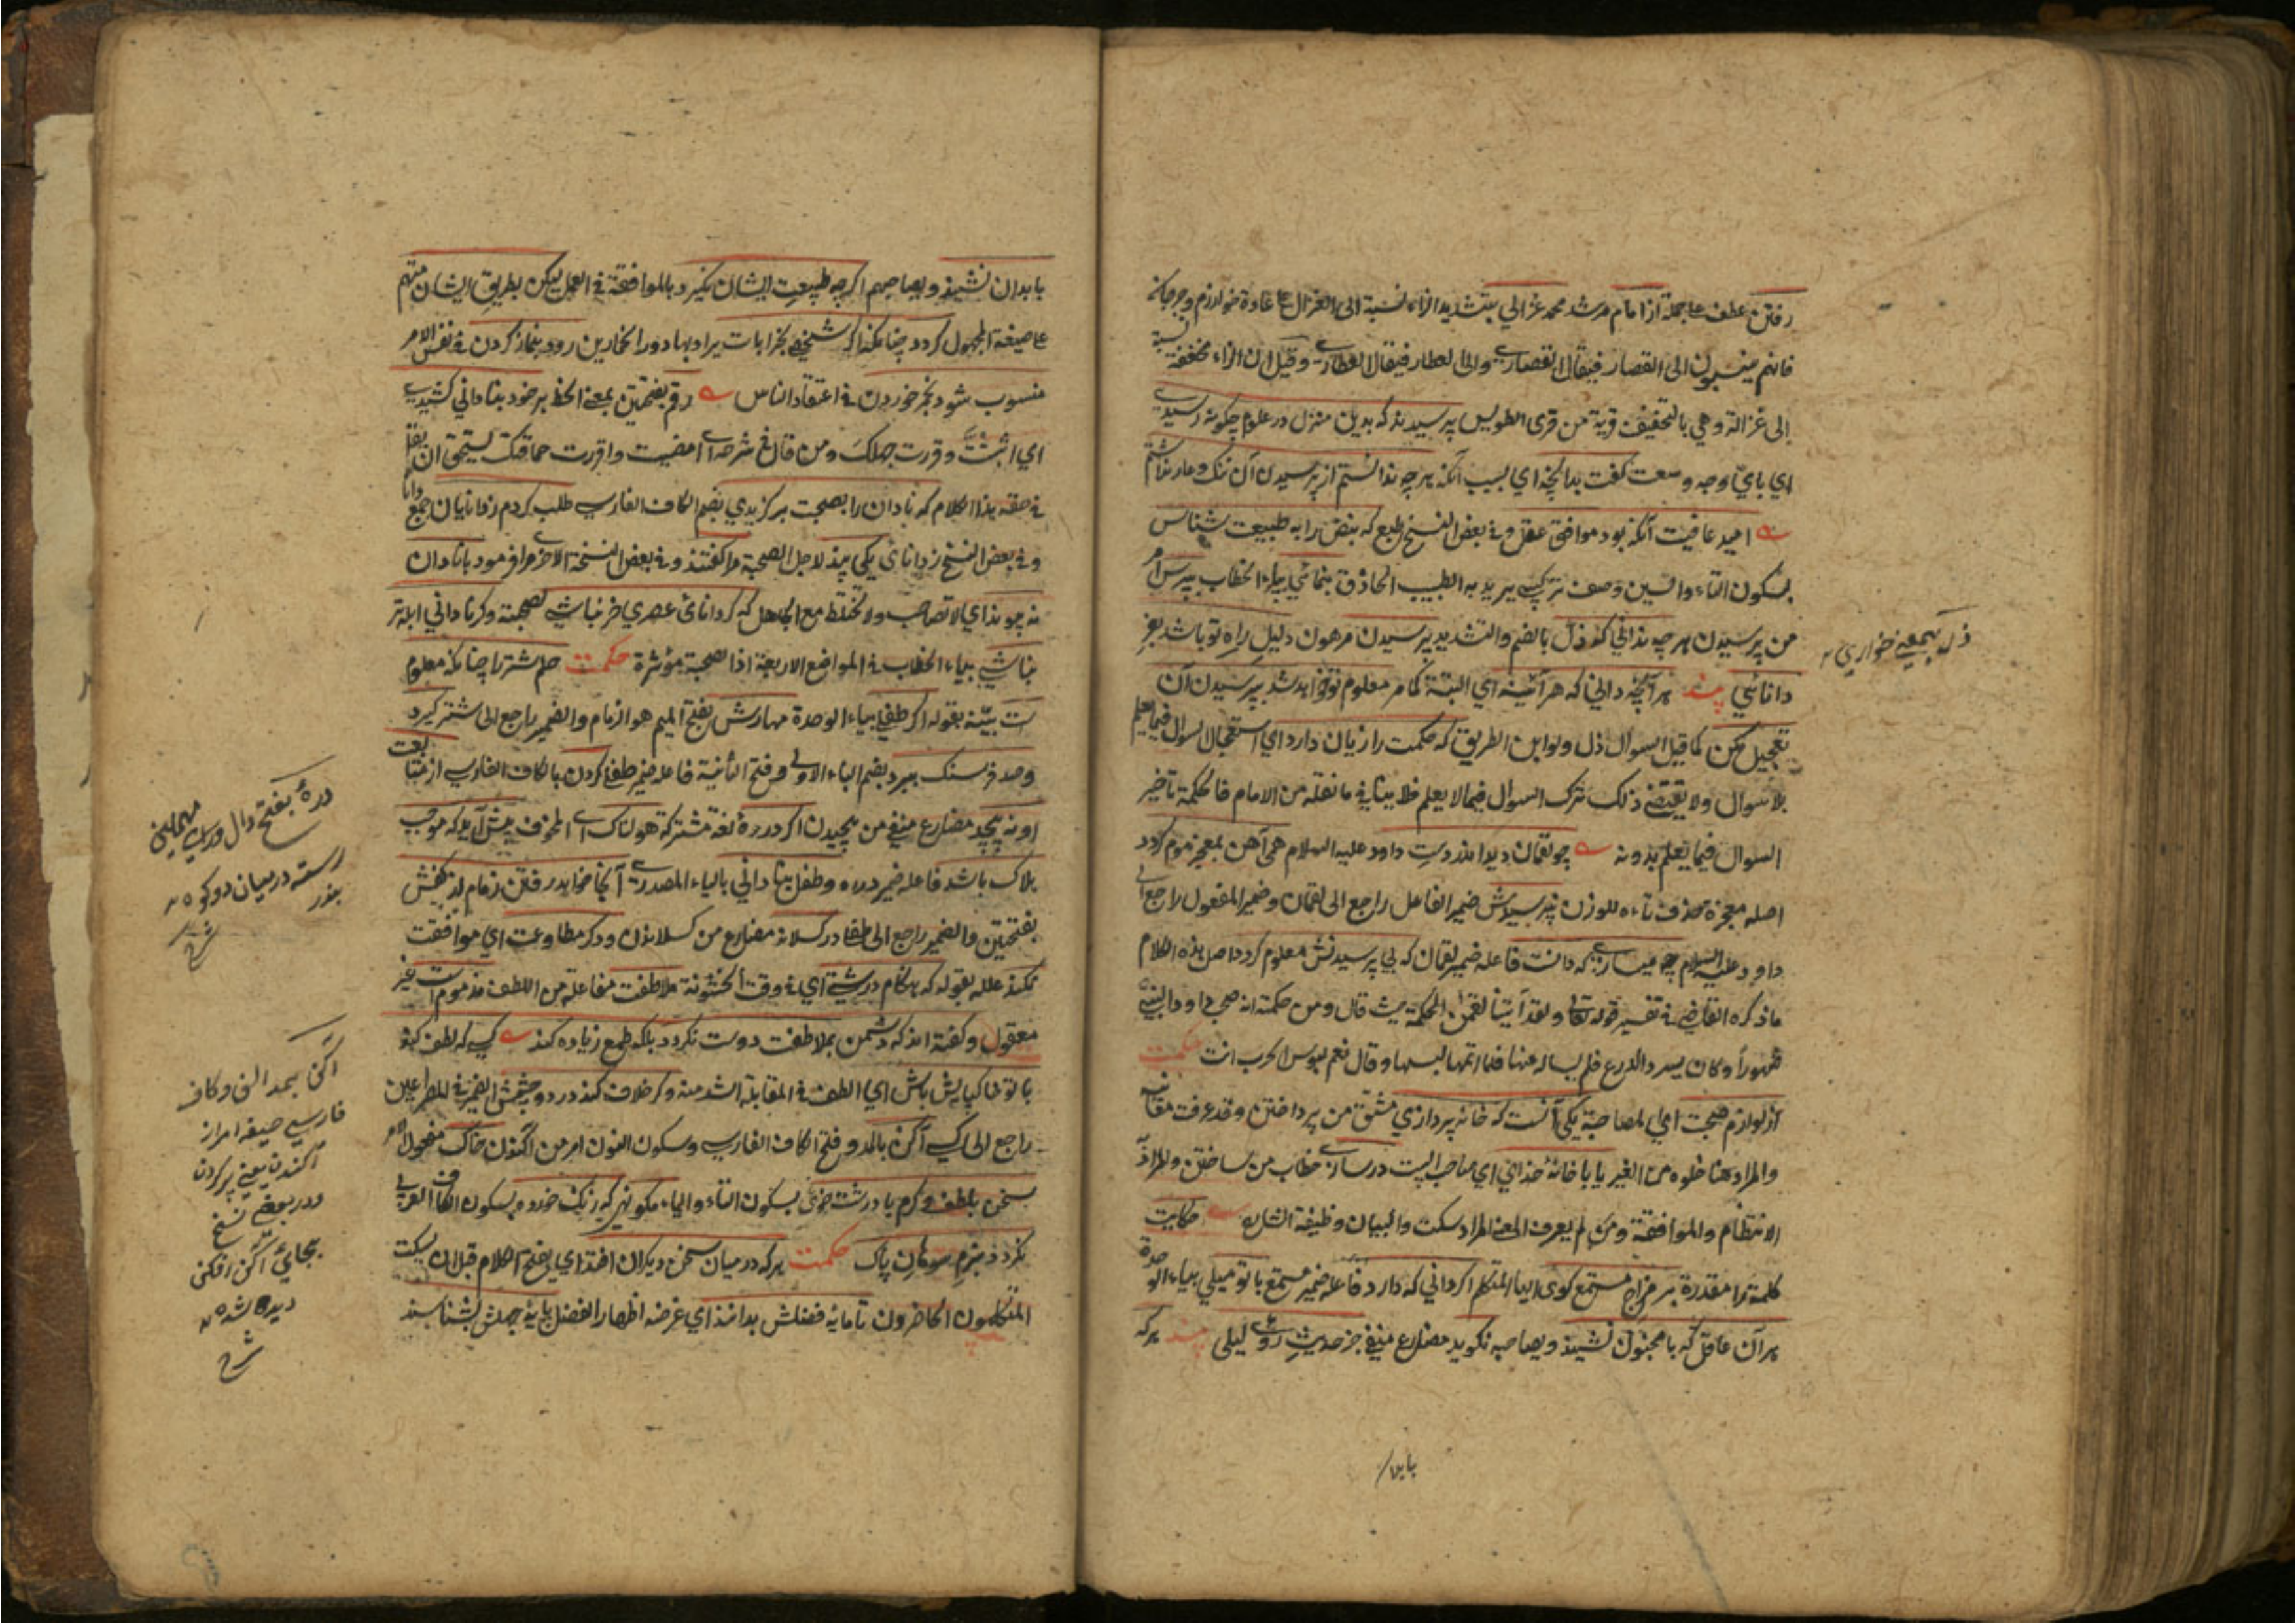 رفتن عطف على جملة از امام مرشد محمد غزالي بتشديد الزاء نسبة الى الغزال على عادة خوارزم وجرجان
فانهم ينسبون الى القصار فيقال القصاري والى العطار فيقال العطاري وقيل ان الزاء مخففة نسبة
إلى غزالة وهي بالتخفيف قرية من قرى الطوس پرسیدند که بدین منزل در علوم چگونه رسیدی
اي باي وجه وصعت گفت بدانچه اي بسبب آنکه هر چه ندانستم از پرسیدن آن ننگ وعار نداشتم
امید عافیت آنگه بود موافق عقل وفي بعض النسخ طبع که نبض را به طبیعت شناس
بسكون التاء والسين وصف تركيبي يريد به الطبيب الحاذق بنمائي بياء الخطاب بپرس امر
من پرسیدن هر چه ندانی که ذل بالضم والتشديد پرسیدن مرهون دلیل راه تو باشد بعز
دانائي پند هر آنچه دانی که هر آئینه اي البتة كما مر معلوم تو خواهد شد بپرسیدن آن
تعجیل مکن كما قيل السؤال ذل ولو اين الطريق که حکمت را زیان دارد اي استعجال السؤال فيما يعلم
بلا سؤال ولا يقتضي ذلك ترك السؤال فيما لا يعلم فلا ينافي ما نقله من الامام فالحكمة تأخير
السؤال فيما يعلم بدونه چو لقمان دید اندر دست داود عليه السلام همی آهن بمعجز موم گردد
اصله معجزة حذف تاءه للوزن نپرسیدش ضمير الفاعل راجع الى لقمان وضمير المفعول راجع الى
داود عليه السلام چه میسازی که دانست فاعله ضمير لقمان که بی پرسیدنش معلوم گردد اصل هذه الكلام
ما ذكره القاضي في تفسير قوله تعالى ولقد آتينا لقمن الحكمة حيث قال ومن حكمته انه صحب داود
شهورا وكان يسرد الدرع فلم يساله عنها فلما اتمها لبسها وقال نعم لبوس الحرب انت حکمت
از لوازم صحبت اي المصاحبة یکی آنست که خانه پردازی مشتق من پرداختن وقد عرفت معناه
والمراد هنا خلوه من الغير یا با خانه خدای اي صاحب البيت درسازی خطاب من ساختن والمراد
الانتظام والموافقة ومن لم يعرف المعنى المراد سكت والبيان وظيفة الشارح حکایت
كلمة را مقدرة بر مزاج مستمع گوی اگر دانی که دارد فاعله ضمير مستمع با تو میلی بياء الوحدة
هر آن عاقل که با مجنون نشیند ويصاحبه نگوید مضارع منفي جز حدیث روی لیلی پند هر که
بابدان
ذل بمعنی خواری
بابدان نشیند ويصاحبهم اگر چه طبیعت ایشان نگیرد بالموافقة في العمل لیکن بطریق ایشان متهم
على صيغة المجهول گردد چنانکه اگر شخصی بخرابات يراد بها دور الخمارين رود بنماز کردن في نفس الامر
منسوب شود بخمر خوردن في اعتقاد الناس رقم بفتحتين بمعنى الخط بر خود بنادانی کشیدی
اي اثبتت وقررت جهلك ومن قال في شرحه اي امضيت واقررت حماقتك يستحق ان يقال
في حقه هذا الكلام که نادان را بصحبت برگزیدی بضم الكاف الفارسي طلب کردم ز دانایان جمع دانا
وفي بعض النسخ ز دانائی یکی پند لاجل الصحبة مرا گفتند وفي بعض النسخة الاخرى مرا فرمود با نادان
مه پیوند اي لا تصاحب ولا تختلط مع الجاهل که گر دانائ عصری خر نباشی بصحبته وگر نادانی ابله تر
بباشی بياء الخطاب في المواضع الاربعة اذ الصحبة مؤثرة حکمت حلم شتر را چنانکه معلوم
ست بينه بقوله اگر طفلی بياء الوحدة مهارش بفتح الميم هو الزمام والضمير راجع الى شتر گیرد
وصد فرسنگ ببرد بضم الباء الاولى وفتح الثانية فاعله ضمير طفل گردن بالكاف الفارسي از متابعت
او نه پیچد مضارع منفي من پیچیدن اگر دره لغة مشتركة هولناك اي المخوف پیش آید که موجب
هلاك باشد فاعله ضمير دره وطفل بنادانی بالياء المصدرية آنجا خواهد رفتن زمام از کفش
بفتحتين والضمير راجع الى طفل درگسلاند مضارع من گسلانیدن ودگر مطاوعت اي موافقت
نکند علله بقوله که هنگام درشتی اي في وقت الخشونة ملاطفت مفاعلة من اللطف مذموم ست غير
معقول وگفته اند که دشمن بملاطفت دوست نگردد بلکه طمع زیاده کند کسی که لطف کند
با تو خاک پایش باش اي الطف في المقابلة اشد منه وگر خلاف کند در دو چشمش الضمير في المصراعين
راجع الى كسي آگن بالمد وفتح الكاف الفارسي وسكون النون امر من آگندن خاك مفعول الامر
سخن بلطف وکرم با درشت خوی بسكون التاء والياء مگو نهي که زنگ خورده بسكون الكاف العربي
نگردد بنرم سوهان پاک حکمت هر که در میان سخن دیگران افتد اي يفتح الكلام قبل ان يسكت
المتكلمون الحاضرون تا مایه فضلش بدانند اي غرضه اظهار الفضل پایه جهلش بشناسند
دره بفتح دال ورای مهملتین
رسته در میان دو کوه
شرح
آگن بمد الف وکاف
فارسی صیغه امر از
آگندن یعنی پر کردن
ودر بعضی نسخ
بجای آگن افکن
دیده شده
شرح